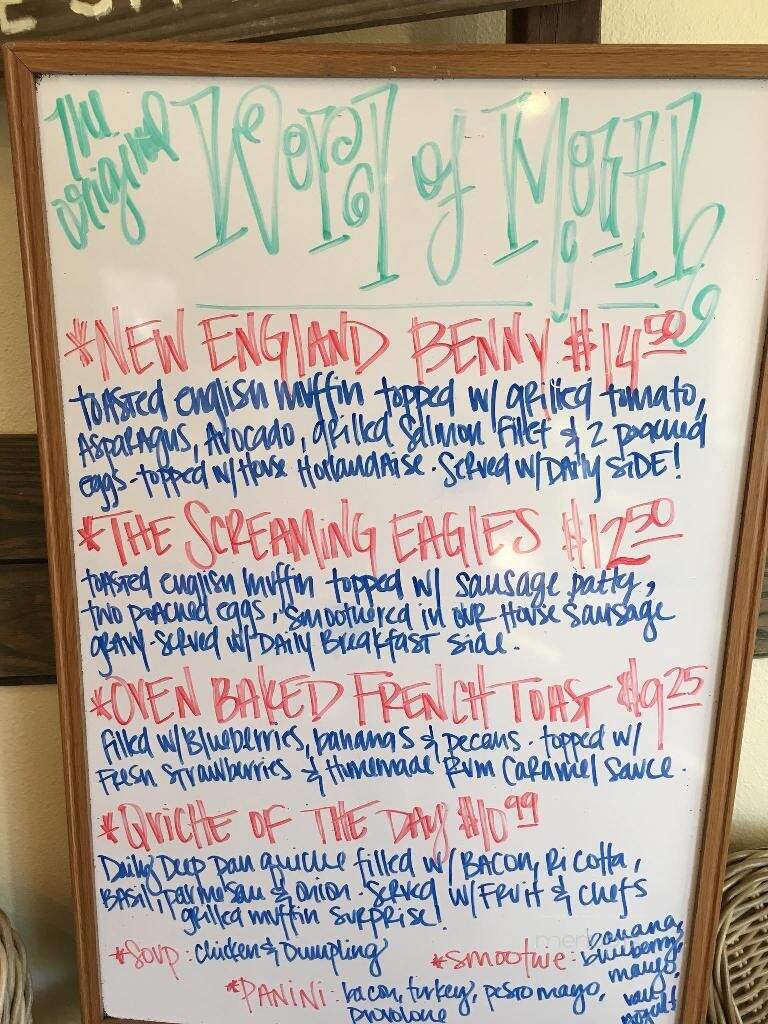 The original Word of Mouth
*NEW ENGLAND BENNY $14.50
toasted english muffin topped w/ grilled tomato,
Asparagus, Avocado, grilled Salmon fillet & 2 poached
eggs - topped w/ House Hollandaise. Served w/ Daily SIDE!
*THE SCREAMING EAGLES $12.50
toasted english muffin topped w/ sausage patty,
two poached eggs, smoothered in our House Sausage
gravy - served w/ Daily Breakfast side.
*OVEN BAKED FRENCH TOAST $9.25
filled w/ Blueberries, bananas & pecans. topped w/
Fresh Strawberries & Homemade Rum Caramel Sauce.
*QUICHE OF THE DAY $10.99
Daily Deep pan quiche filled w/ BACON, Ricotta,
BASIL, parmesan & onion. Served w/ FRUIT & chefs
grilled muffin surprise!
*Soup: chicken & Dumpling
*smoothie: banana,
blueberry,
mango,
yogurt
*PANINI: bacon, turkey, pesto mayo,
provolone